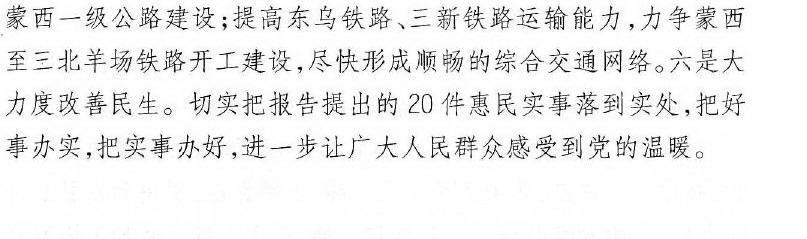 蒙西一级公路建设;提高东乌铁路、三新铁路运输能力,力争蒙西
至三北羊场铁路开工建设,尽快形成顺畅的综合交通网络。六是大
力度改善民生。切实把报告提出的 20 件惠民实事落到实处,把好
事办实,把实事办好,进一步让广大人民群众感受到党的温暖。